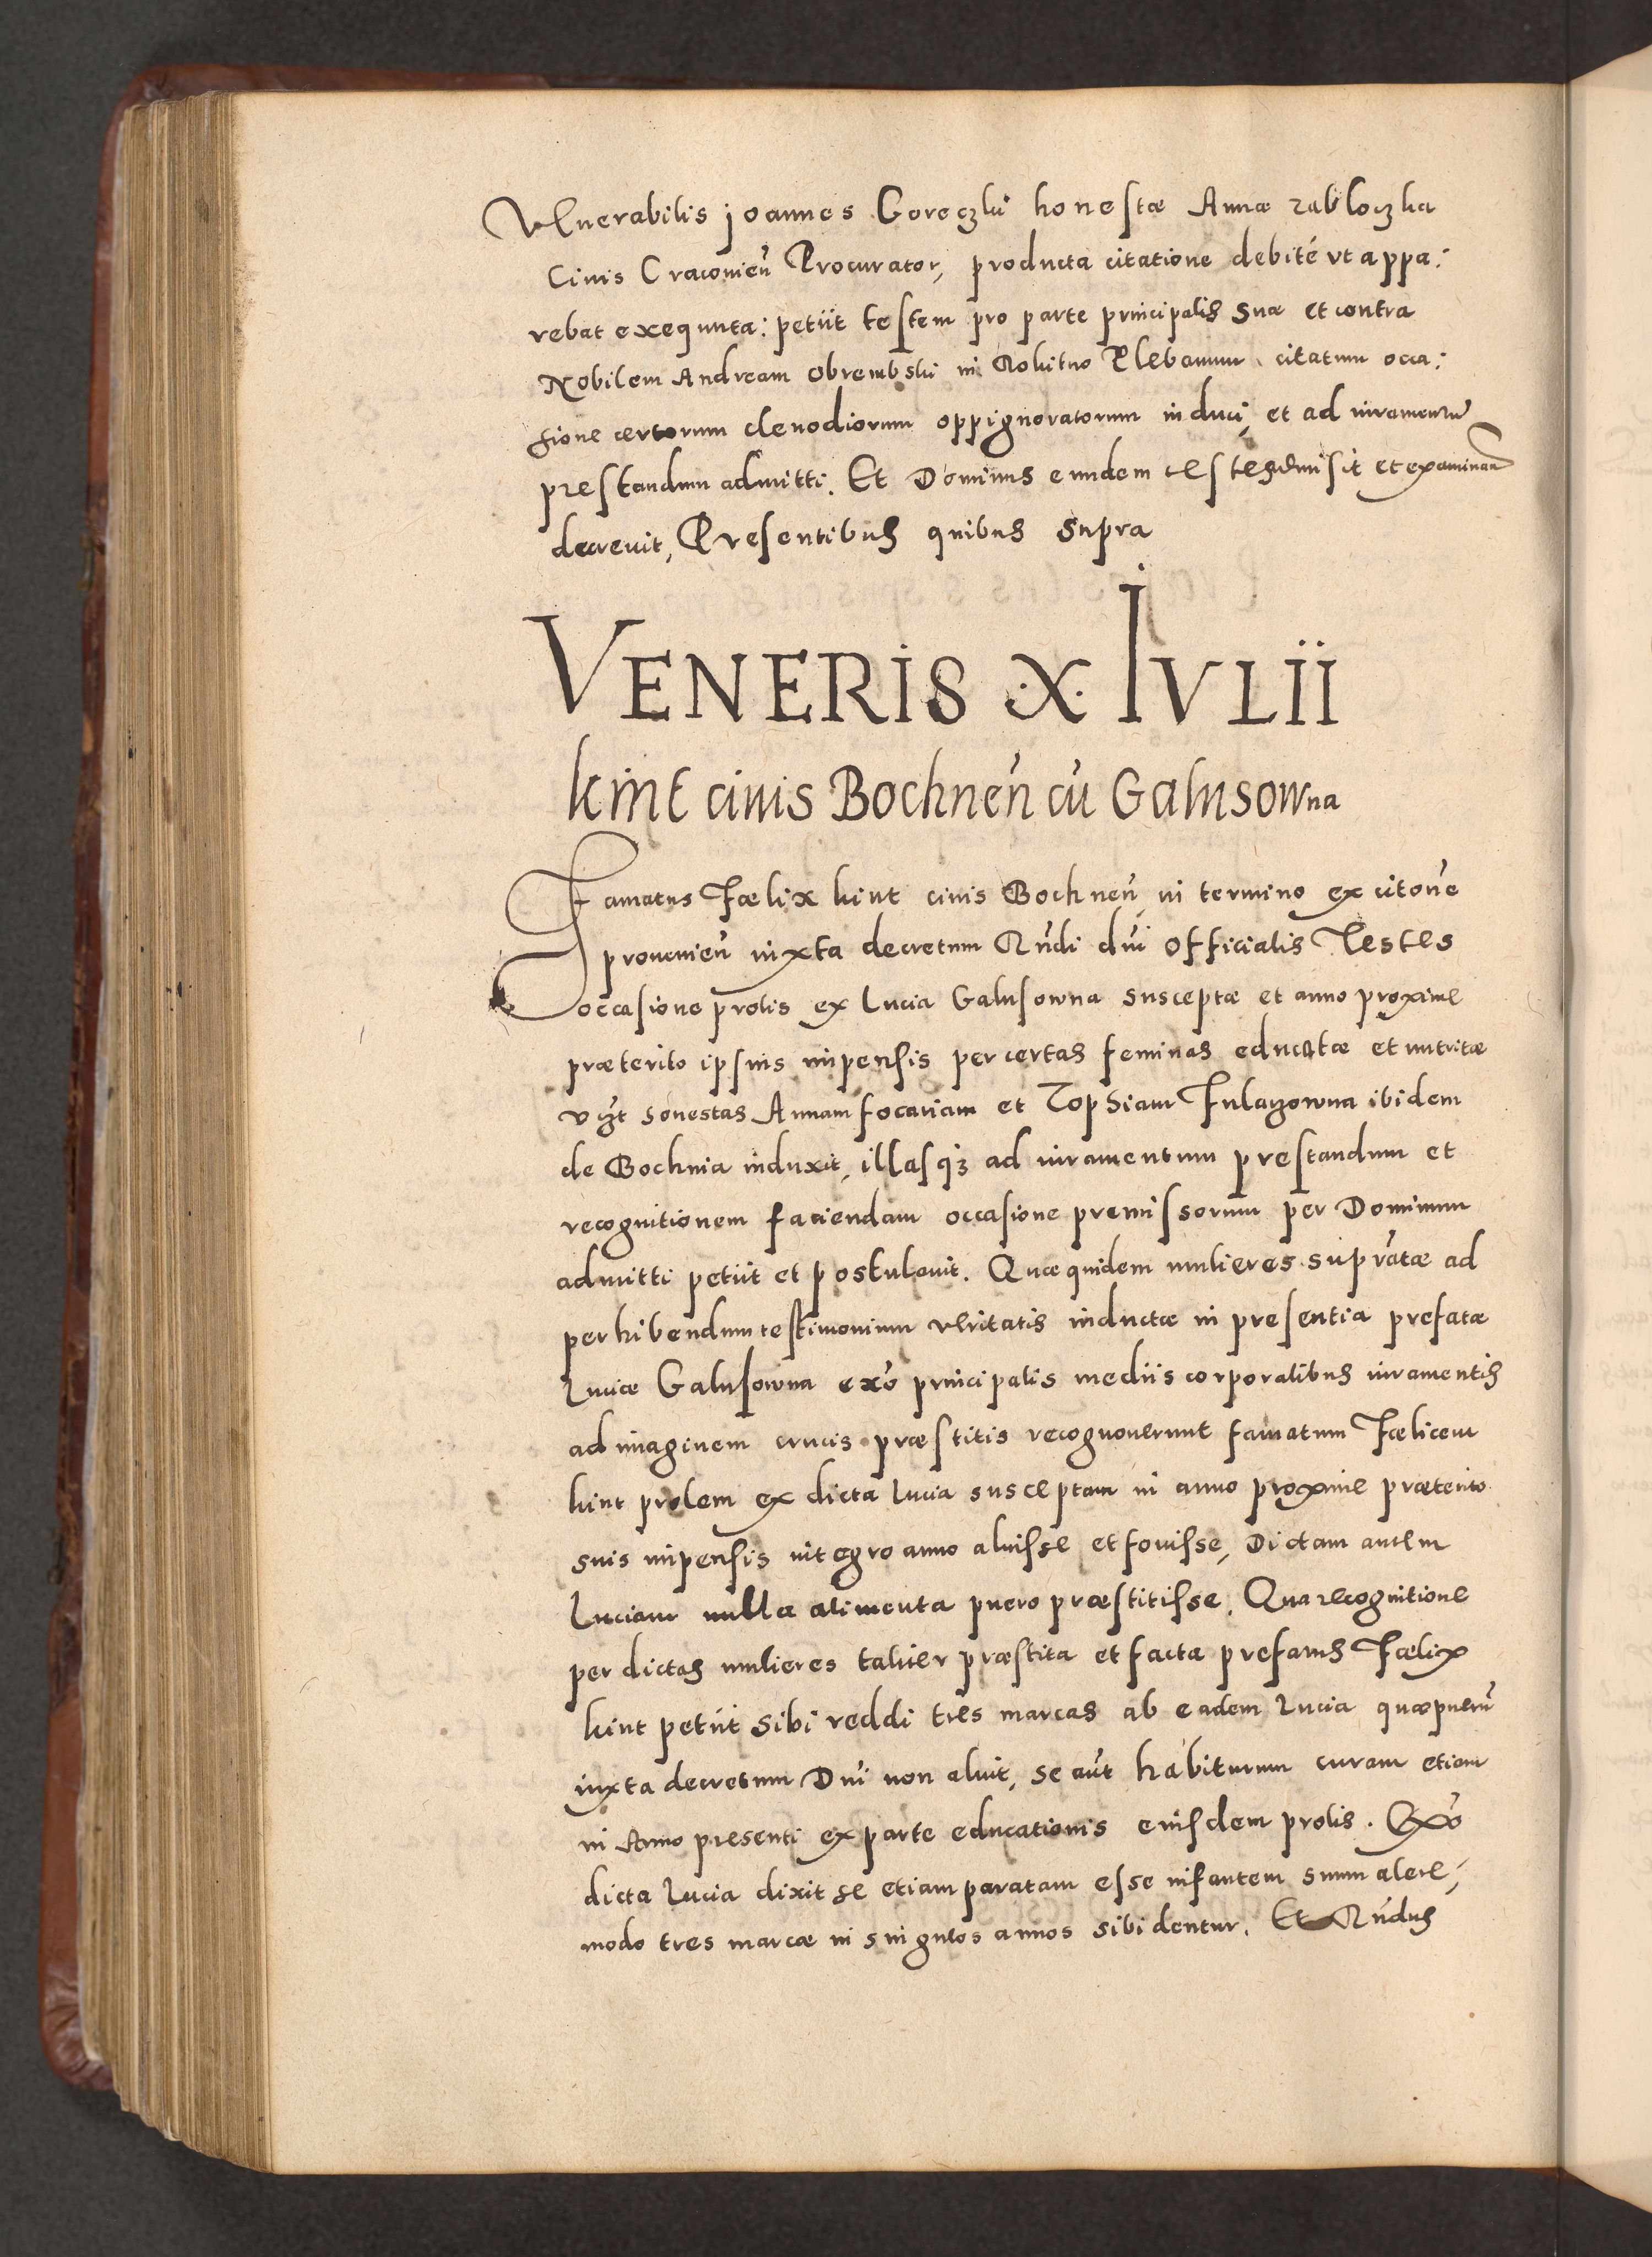 Venerabilis Joannes Goreczki honestæ Annæ Zabloczka
Civis Cracovień Procurator, producta citatione debité ut appa:
rebat exequuta: petiit testem pro parte principalis suæ et contra
Nobilem Andream Obrembski in Rokitno Plebanum citatum occa:
sione certorum clenodiorum oppignoratorum induci, et ad iuramentū
prestandum admitti. Et Dominus eundem testem admisit et examinań
decrevit, Presentibus quibus supra
VENERIS .X. IVLII
kint civis Bochneń cū Galusowna
Famatus Fœlix kint civis Bochneń in termino ex citoñe
provenień iuxta decretum Rńdi dńi Officialis Testes
occasione prolis ex Lucia Galusowna susceptæ et anno proxime
præterito ipsius impensis per certas feminas educatæ et nutritæ
vżt honestas Annam focariam et Zophiam ibidem
de Bochnia induxit, illasqz ad iuramentum prestandum et
recognitionem faciendam occasione premissorum per Dominum
admitti petiit et postulavit. Quæquidem mulieres supratæ ad
perhibendum testimonium veritatis inductæ in presentia prefatæ
Luciæ Galusowna exó principalis mediis corporalibus iuramentis
ad imaginem crucis præstitis recognoverunt famatum Fœlicem
kint prolem ex dicta Lucia susceptam in anno proxime præterito
suis impensis integro anno aluisse et fovisse, Dictam autem
Luciam nulla alimenta puero præstitisse. Qua recognitione
per dictas mulieres taliter præstita et facta prefatus Fœlix
kint petiit sibi reddi tres marcas ab eadem Lucia quæ puerū
iuxta decretum Dńi non aluit, se aut́ habiturum curam etiam
in Anno presenti ex parte educationis eiusdem prolis. Exó
dicta Lucia dixit se etiam paratam esse infantem suum alere,
modo tres marcæ in singulos annos sibi dentur. Et Rńdus